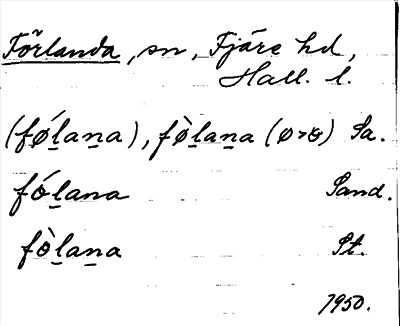 Förlanda, sn, Fjäre hd,
Hall. l.
(fǿḻaṉa), fø̀ḻaṉa (ø>ɵ) Sa.
fɵ́ḻana Sand.
fɵ̀ḻaṉa St.
1950.